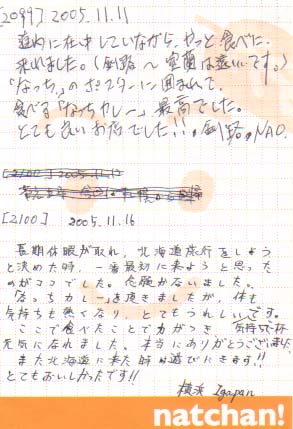 [2099] 2005.11.11
道内に在中していながら、やっと食べに
来れました。(釧路〜室蘭は遠いです。)
「なっち」のポスターに囲まれて、
食べる「なっちカレー」、最高でした。
とても良いお店でした!!。釧路。NAO.
[2100] 2005.11.12
[2100] 2005.11.16
長期休暇が取れ、北海道旅行をしよう
と決めた時、一番最初に来ようと思った
のがココでした。念願かないました。
「なっちカレー」を頂きましたが、体も
気持ちも熱くなり、とてもうれしいです。
ここで食べたことで力がつき、気持ち一杯
元気になれました。本当にありがとうございました。
また北海道に来た時は遊びにきます!!
とてもおいしかったです!!
横浜 Igapan
natchan!